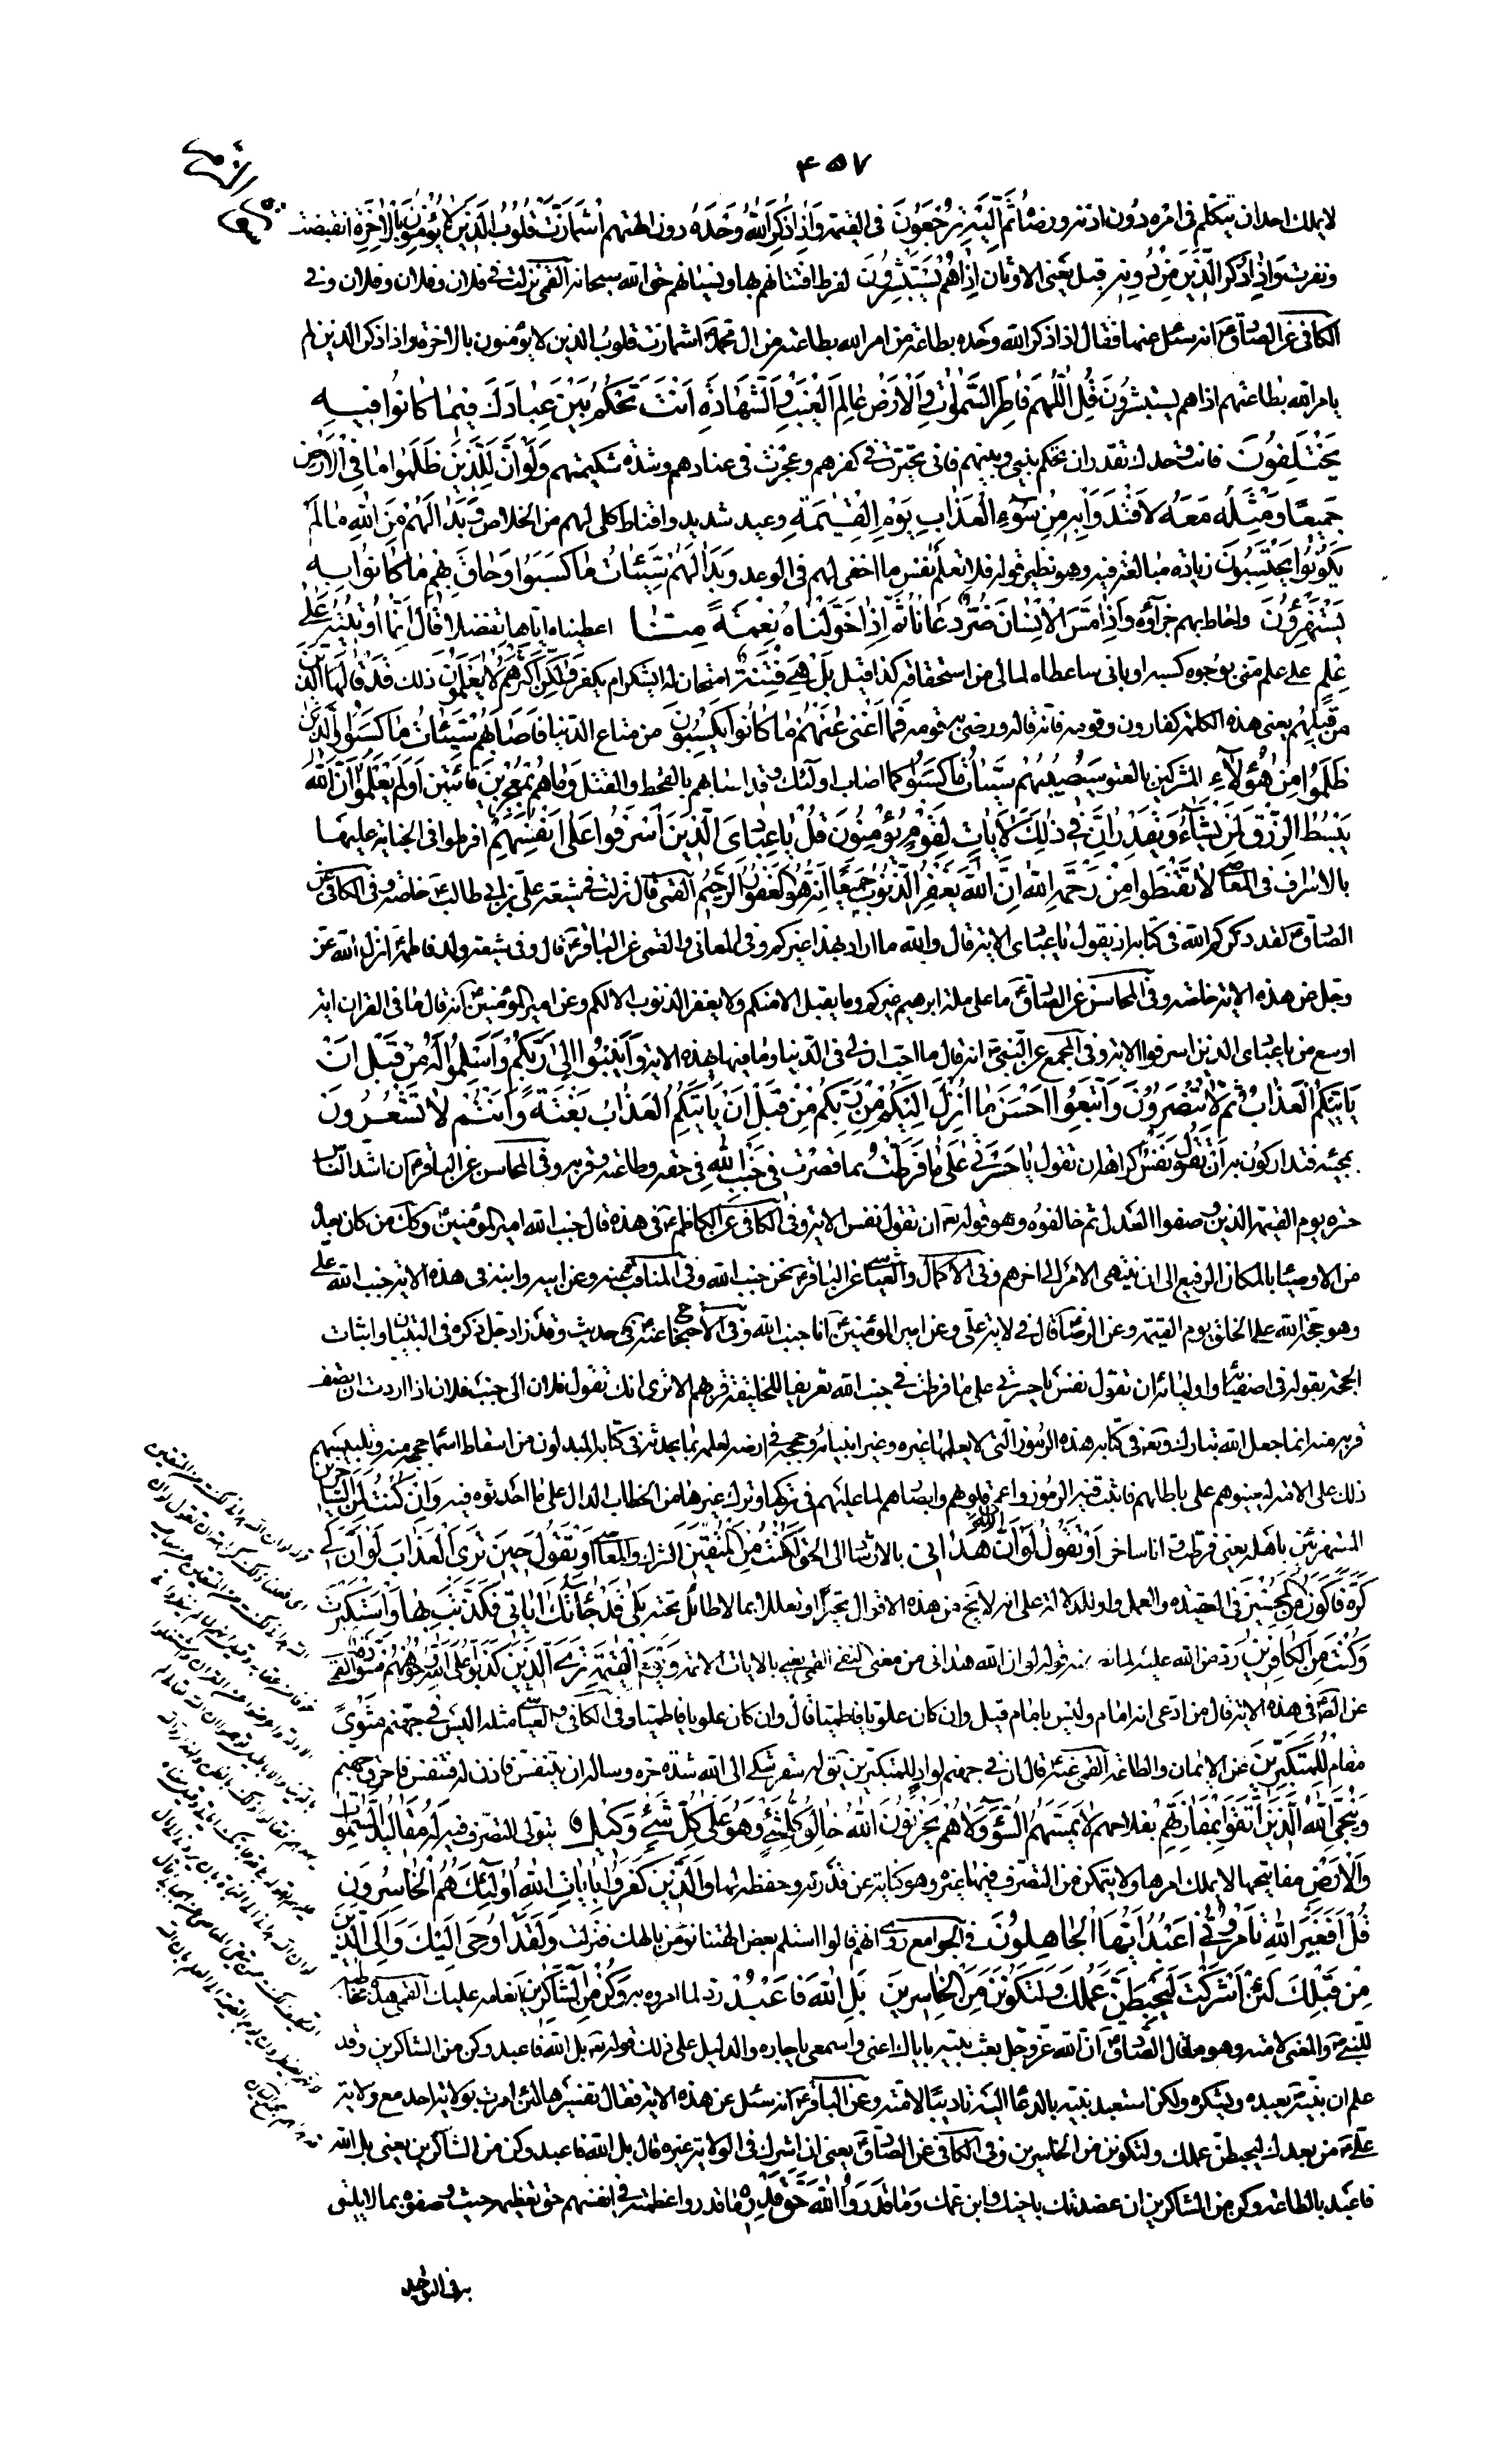 ٤٥٧
لا يملك احد ان يتكلم فى امره دون اذنه ورضاه ثُمَّ اِلَيْهِ تُرْجَعُونَ فى القيمة وَاِذا ذُكِرَ اللّٰهُ وَحْدَهُ دون الهتهم اشْمَأَزَّتْ قُلُوبُ الَّذِينَ لا يُؤْمِنُونَ بِالْاخِرَةِ انقبضت
ونفرت وَاِذا ذُكِرَ الَّذِينَ مِنْ دُونِهِ قيل يعنى الاوثان اِذا هُمْ يَسْتَبْشِرُونَ لفرط افتتانهم بها ونسيانهم حق الله سبحانه القمى نزلت فى فلان وفلان وفلان وفى
الكافى عن الصادق ع انه سئل عنها فقال اذا ذكر الله وحده بطاعة من امر الله بطاعته من ال محمد اشمازت قلوب الذين لا يؤمنون بالاخرة واذا ذكر الذين لم
يامر الله بطاعتهم اذا هم يستبشرون قُلِ اللّٰهُمَّ فاطِرَ السَّمٰواتِ وَالْاَرْضِ عالِمَ الْغَيْبِ وَالشَّهادَةِ اَنْتَ تَحْكُمُ بَيْنَ عِبادِكَ فِيما كانُوا فِيهِ
يَخْتَلِفُونَ فانت وحدك تقدر ان تحكم بينى وبينهم فانى تحيرت فى كفرهم وعجزت فى عنادهم وشدة شكيمتهم وَلَوْ اَنَّ لِلَّذِينَ ظَلَمُوا ما فِى الْاَرْضِ
جَمِيعًا وَمِثْلَهُ مَعَهُ لافْتَدَوْا بِهِ مِنْ سُوءِ الْعَذابِ يَوْمَ الْقِيٰمَةِ وعيد شديد واقناط كلى لهم من الخلاص وَبَدا لَهُمْ مِنَ اللّٰهِ ما لَمْ
يَكُونُوا يَحْتَسِبُونَ زيادة مبالغة فيه وهو نظير قوله فلا تعلم نفس ما اخفى لهم فى الوعد وَبَدا لَهُمْ سَيِّئاتُ ما كَسَبُوا وَحاقَ بِهِمْ ما كانُوا بِهِ
يَسْتَهْزِؤُنَ واحاط بهم جزاؤه وَاِذا مَسَّ الْاِنْسانَ ضُرٌّ دَعانا ثُمَّ اِذا خَوَّلْناهُ نِعْمَةً مِنَّا اعطيناه اياها تفضلا قالَ اِنَّما اُوتِيتُهُ عَلى
عِلْمٍ على علم منى بوجوه كسبه او بانى ساعطاه لما لى من استحقاقه كذا قيل بَلْ هِىَ فِتْنَةٌ امتحان له ايشكر ام يكفر وَلٰكِنَّ اَكْثَرَهُمْ لا يَعْلَمُونَ ذلك قَدْ قالَهَا الَّذِينَ
مِنْ قَبْلِهِمْ يعنى هذه الكلمة كقارون وقومه فانه قاله ورضى به قومه فَما اَغْنى عَنْهُمْ ما كانُوا يَكْسِبُونَ من متاع الدنيا فَاَصابَهُمْ سَيِّئاتُ ما كَسَبُوا وَالَّذِينَ
ظَلَمُوا مِنْ هٰؤُلاءِ المشركين بالعتو سَيُصِيبُهُمْ سَيِّئاتُ ما كَسَبُوا كما اصاب اولئك وقد اصابهم بالقحط والقتل وَما هُمْ بِمُعْجِزِينَ فائتين اَوَلَمْ يَعْلَمُوا اَنَّ اللّٰهَ
يَبْسُطُ الرِّزْقَ لِمَنْ يَشاءُ وَيَقْدِرُ اِنَّ فِى ذٰلِكَ لَاٰياتٍ لِقَوْمٍ يُؤْمِنُونَ قُلْ يا عِبادِىَ الَّذِينَ اَسْرَفُوا عَلى اَنْفُسِهِمْ افرطوا فى الجناية عليها
بالاسراف فى المعاصى لا تَقْنَطُوا مِنْ رَحْمَةِ اللّٰهِ اِنَّ اللّٰهَ يَغْفِرُ الذُّنُوبَ جَمِيعًا اِنَّهُ هُوَ الْغَفُورُ الرَّحِيمُ القمى قال نزلت فى شيعة على بن ابى طالب ع خاصة وفى الكافى عن
الصادق ع لقد ذكركم الله فى كتابه اذ يقول يا عبادى الاية قال والله ما اراد بهذا غيركم وفى المعانى والقمى عن الباقر ع قال وفى شيعة ولد فاطمة انزل الله عز
وجل هذه الاية خاصة وفى المحاسن عن الصادق ع ما على ملة ابرهيم غيركم وما يقبل الا منكم ولا يغفر الذنوب الا لكم وعن امير المؤمنين ع انه قال ما فى القران اية
اوسع من يا عبادى الذين اسرفوا الاية وفى المجمع عن النبى ص انه قال ما احب ان لى فى الدنيا وما فيها بهذه الاية وَاَنِيبُوا اِلى رَبِّكُمْ وَاَسْلِمُوا لَهُ مِنْ قَبْلِ اَنْ
يَاْتِيَكُمُ الْعَذابُ ثُمَّ لا تُنْصَرُونَ وَاتَّبِعُوا اَحْسَنَ ما اُنْزِلَ اِلَيْكُمْ مِنْ رَبِّكُمْ مِنْ قَبْلِ اَنْ يَاْتِيَكُمُ الْعَذابُ بَغْتَةً وَاَنْتُمْ لا تَشْعُرُونَ
بمجيئه فتداركون به اَنْ تَقُولَ نَفْسٌ كراهة ان تقول يا حَسْرَتى عَلى ما فَرَّطْتُ بما قصرت فِى جَنْبِ اللّٰهِ فى حقه وطاعته وقربه وفى المحاسن عن الباقر ع ان اشد الناس
حسرة يوم القيمة الذين وصفوا العدل ثم خالفوه وهو قوله تعـ ان تقول نفس الاية وفى الكافى عن الكاظم ع فى هذه قال جنب الله امير المؤمنين ع وكك من كان بعده
من الاوصياء بالمكان الرفيع الى ان ينتهى الامر الى اخرهم وفى الاكمال والعياشى عن الباقر ع نحن جنب الله وفى المناقب عنه وعن ابيه وابنه فى هذه الاية جنب الله على
وهو حجة الله على الخلق يوم القيمة وعن الرضا ع قال فى ولاية على وعن امير المؤمنين ع انا جنب الله وفى الاحتجاج عنه ع فى حديث وقد زاد جل ذكره فى التبيان واثبات
الحجة بقوله فى اصفيائه واوليائه ان تقول نفس يا حسرتى على ما فرطت فى جنب الله تعريفا للخليقة قربهم الا ترى انك تقول فلان الى جنب فلان اذا اردت ان تصف
قربه منه انما جعل الله تبارك وتعـ فى كتابه هذه الرموز التى لا يعلمها غيره وغير انبيائه وحججه فى ارضه لعلمه بما يحدثه فى كتابه المبدلون من اسقاط اسماء حججه منه وتلبيسهم
ذلك على الامة ليعينوهم على باطلهم فاثبت فيه الرموز واعمى قلوبهم وابصارهم لما عليهم فى تركها وترك غيرها من الخطاب الدال على ما احدثوه فيه وَاِنْ كُنْتُ لَمِنَ السّاخِرِينَ
المستهزئين باهله يعنى فرطت وانا ساخر اَوْ تَقُولَ لَوْ اَنَّ اللّٰهَ هَدانِى بالارشاد الى الحق لَكُنْتُ مِنَ الْمُتَّقِينَ الشرك والمعاصى اَوْ تَقُولَ حِينَ تَرَى الْعَذابَ لَوْ اَنَّ لِى
كَرَّةً فَاَكُونَ مِنَ الْمُحْسِنِينَ فى العقيدة والعمل واو للدلالة على انه لا يخ من هذه الاقوال تحيرا وتعللا بما لا طائل تحته بَلى قَدْ جاءَتْكَ اٰياتِى فَكَذَّبْتَ بِها وَاسْتَكْبَرْتَ
وَكُنْتَ مِنَ الْكافِرِينَ رد من الله عليه لما تضمنه قوله لو ان الله هدانى من معنى النفى القمى يعنى بالايات الائمة وَيَوْمَ الْقِيٰمَةِ تَرَى الَّذِينَ كَذَبُوا عَلَى اللّٰهِ وُجُوهُهُمْ مُسْوَدَّةٌ القمى
عن الصادق ع فى هذه الاية قال من ادعى انه امام وليس بامام قيل وان كان علويا فاطميا قال وان كان علويا فاطميا وفى الكافى والعياشى مثله اَلَيْسَ فِى جَهَنَّمَ مَثْوًى
مقام لِلْمُتَكَبِّرِينَ عن الايمان والطاعة القمى عنه ع قال ان فى جهنم لواد للمتكبرين يق له سقر شكى الى الله شدة حره وساله ان يتنفس فاذن له فتنفس فاحرق جهنم
وَيُنَجِّى اللّٰهُ الَّذِينَ اتَّقَوْا بِمَفازَتِهِمْ بفلاحهم لا يَمَسُّهُمُ السُّوءُ وَلا هُمْ يَحْزَنُونَ اَللّٰهُ خالِقُ كُلِّ شَىْءٍ وَهُوَ عَلى كُلِّ شَىْءٍ وَكِيلٌ يتولى التصرف فيه لَهُ مَقالِيدُ السَّمٰواتِ
وَالْاَرْضِ مفاتيحها لا يملك امرها ولا يتمكن من التصرف فيها غيره وهو كناية عن قدرته وحفظه لها وَالَّذِينَ كَفَرُوا بِاٰياتِ اللّٰهِ اُولٰئِكَ هُمُ الْخاسِرُونَ
قُلْ اَفَغَيْرَ اللّٰهِ تَاْمُرُونِّى اَعْبُدُ اَيُّهَا الْجاهِلُونَ فى الجوامع روى انهم قالوا استلم بعض الهتنا نؤمن بالهك فنزلت وَلَقَدْ اُوحِىَ اِلَيْكَ وَاِلَى الَّذِينَ
مِنْ قَبْلِكَ لَئِنْ اَشْرَكْتَ لَيَحْبَطَنَّ عَمَلُكَ وَلَتَكُونَنَّ مِنَ الْخاسِرِينَ بَلِ اللّٰهَ فَاعْبُدْ رد لما امروه به وَكُنْ مِنَ الشّاكِرِينَ انعامه عليك القمى هذه مخاطبة
للنبى ص والمعنى لامته وهو ما قال الصادق ع ان الله عز وجل بعث نبيه باياك اعنى واسمعى يا جاره والدليل على ذلك قوله تعـ بل الله فاعبد وكن من الشاكرين وقد
علم ان نبيه ص يعبده ويشكره ولكن استعبد نبيه بالدعاء اليه تاديبا لامته وعن الباقر ع انه سئل عن هذه الاية فقال تفسيرها لئن امرت بولاية احد مع ولاية
على ع من بعدك ليحبطن عملك ولتكونن من الخاسرين وفى الكافى عن الصادق ع يعنى ان اشركت فى الولاية غيره قال بل الله فاعبد وكن من الشاكرين يعنى بل الله
فاعبد بالطاعة وكن من الشاكرين ان عضدتك باخيك وابن عمك وَما قَدَرُوا اللّٰهَ حَقَّ قَدْرِهِ ما قدروا عظمته فى انفسهم حق تعظيمه حيث وصفوه بما لا يليق
به فى التوحيد